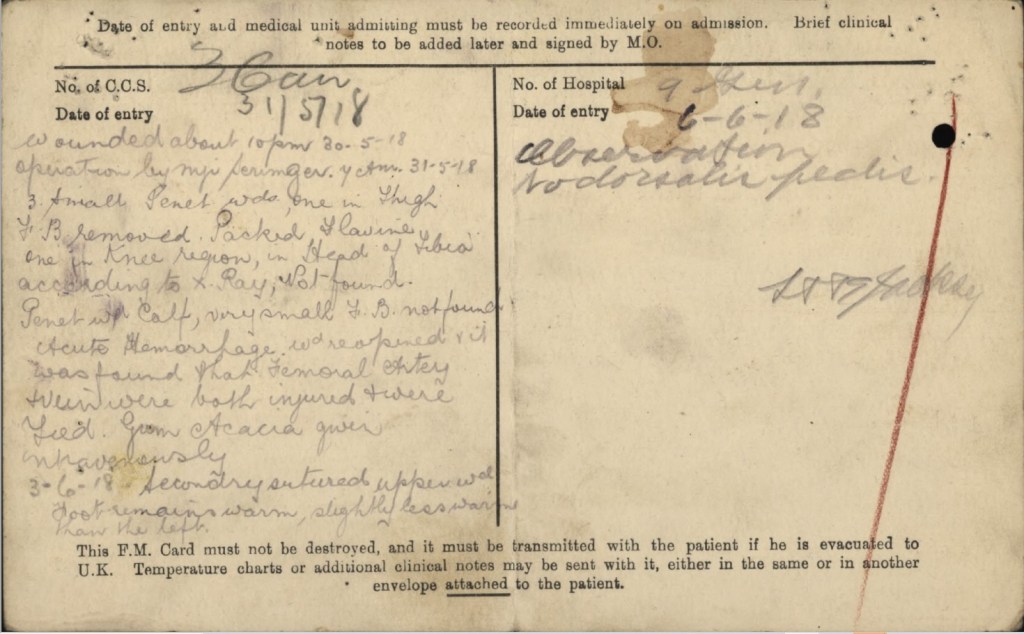 Date of entry and medical unit admitting must be recorded immediately on admission. Brief clinical
notes to be added later and signed by M.O.
No. of C.C.S. 3 Can
Date of entry 31/5/18
wounded about 10 pm 30-5-18
operation by Mjr Scrimger. 4 am 31-5-18
3 small Penet wds, one in Thigh
F.B. removed. Packed Flavine,
one in Knee region, in Head of Tibia
according to X-Ray, Not found.
Penet wd Calf, very small F.B. not found
Acute Hemorrhage. wd reopened & it
was found that Femoral Artery
& Vein were both injured & were
Tied. Gum Acacia given
intravenously
3-6-18 Secondry sutured upper wd
Foot remains warm, slightly less warm
than the left.
No. of Hospital 9 Gen.
Date of entry 6-6-18
Observation
No dorsalis pedis.
This F.M. Card must not be destroyed, and it must be transmitted with the patient if he is evacuated to
U.K. Temperature charts or additional clinical notes may be sent with it, either in the same or in another
envelope attached to the patient.